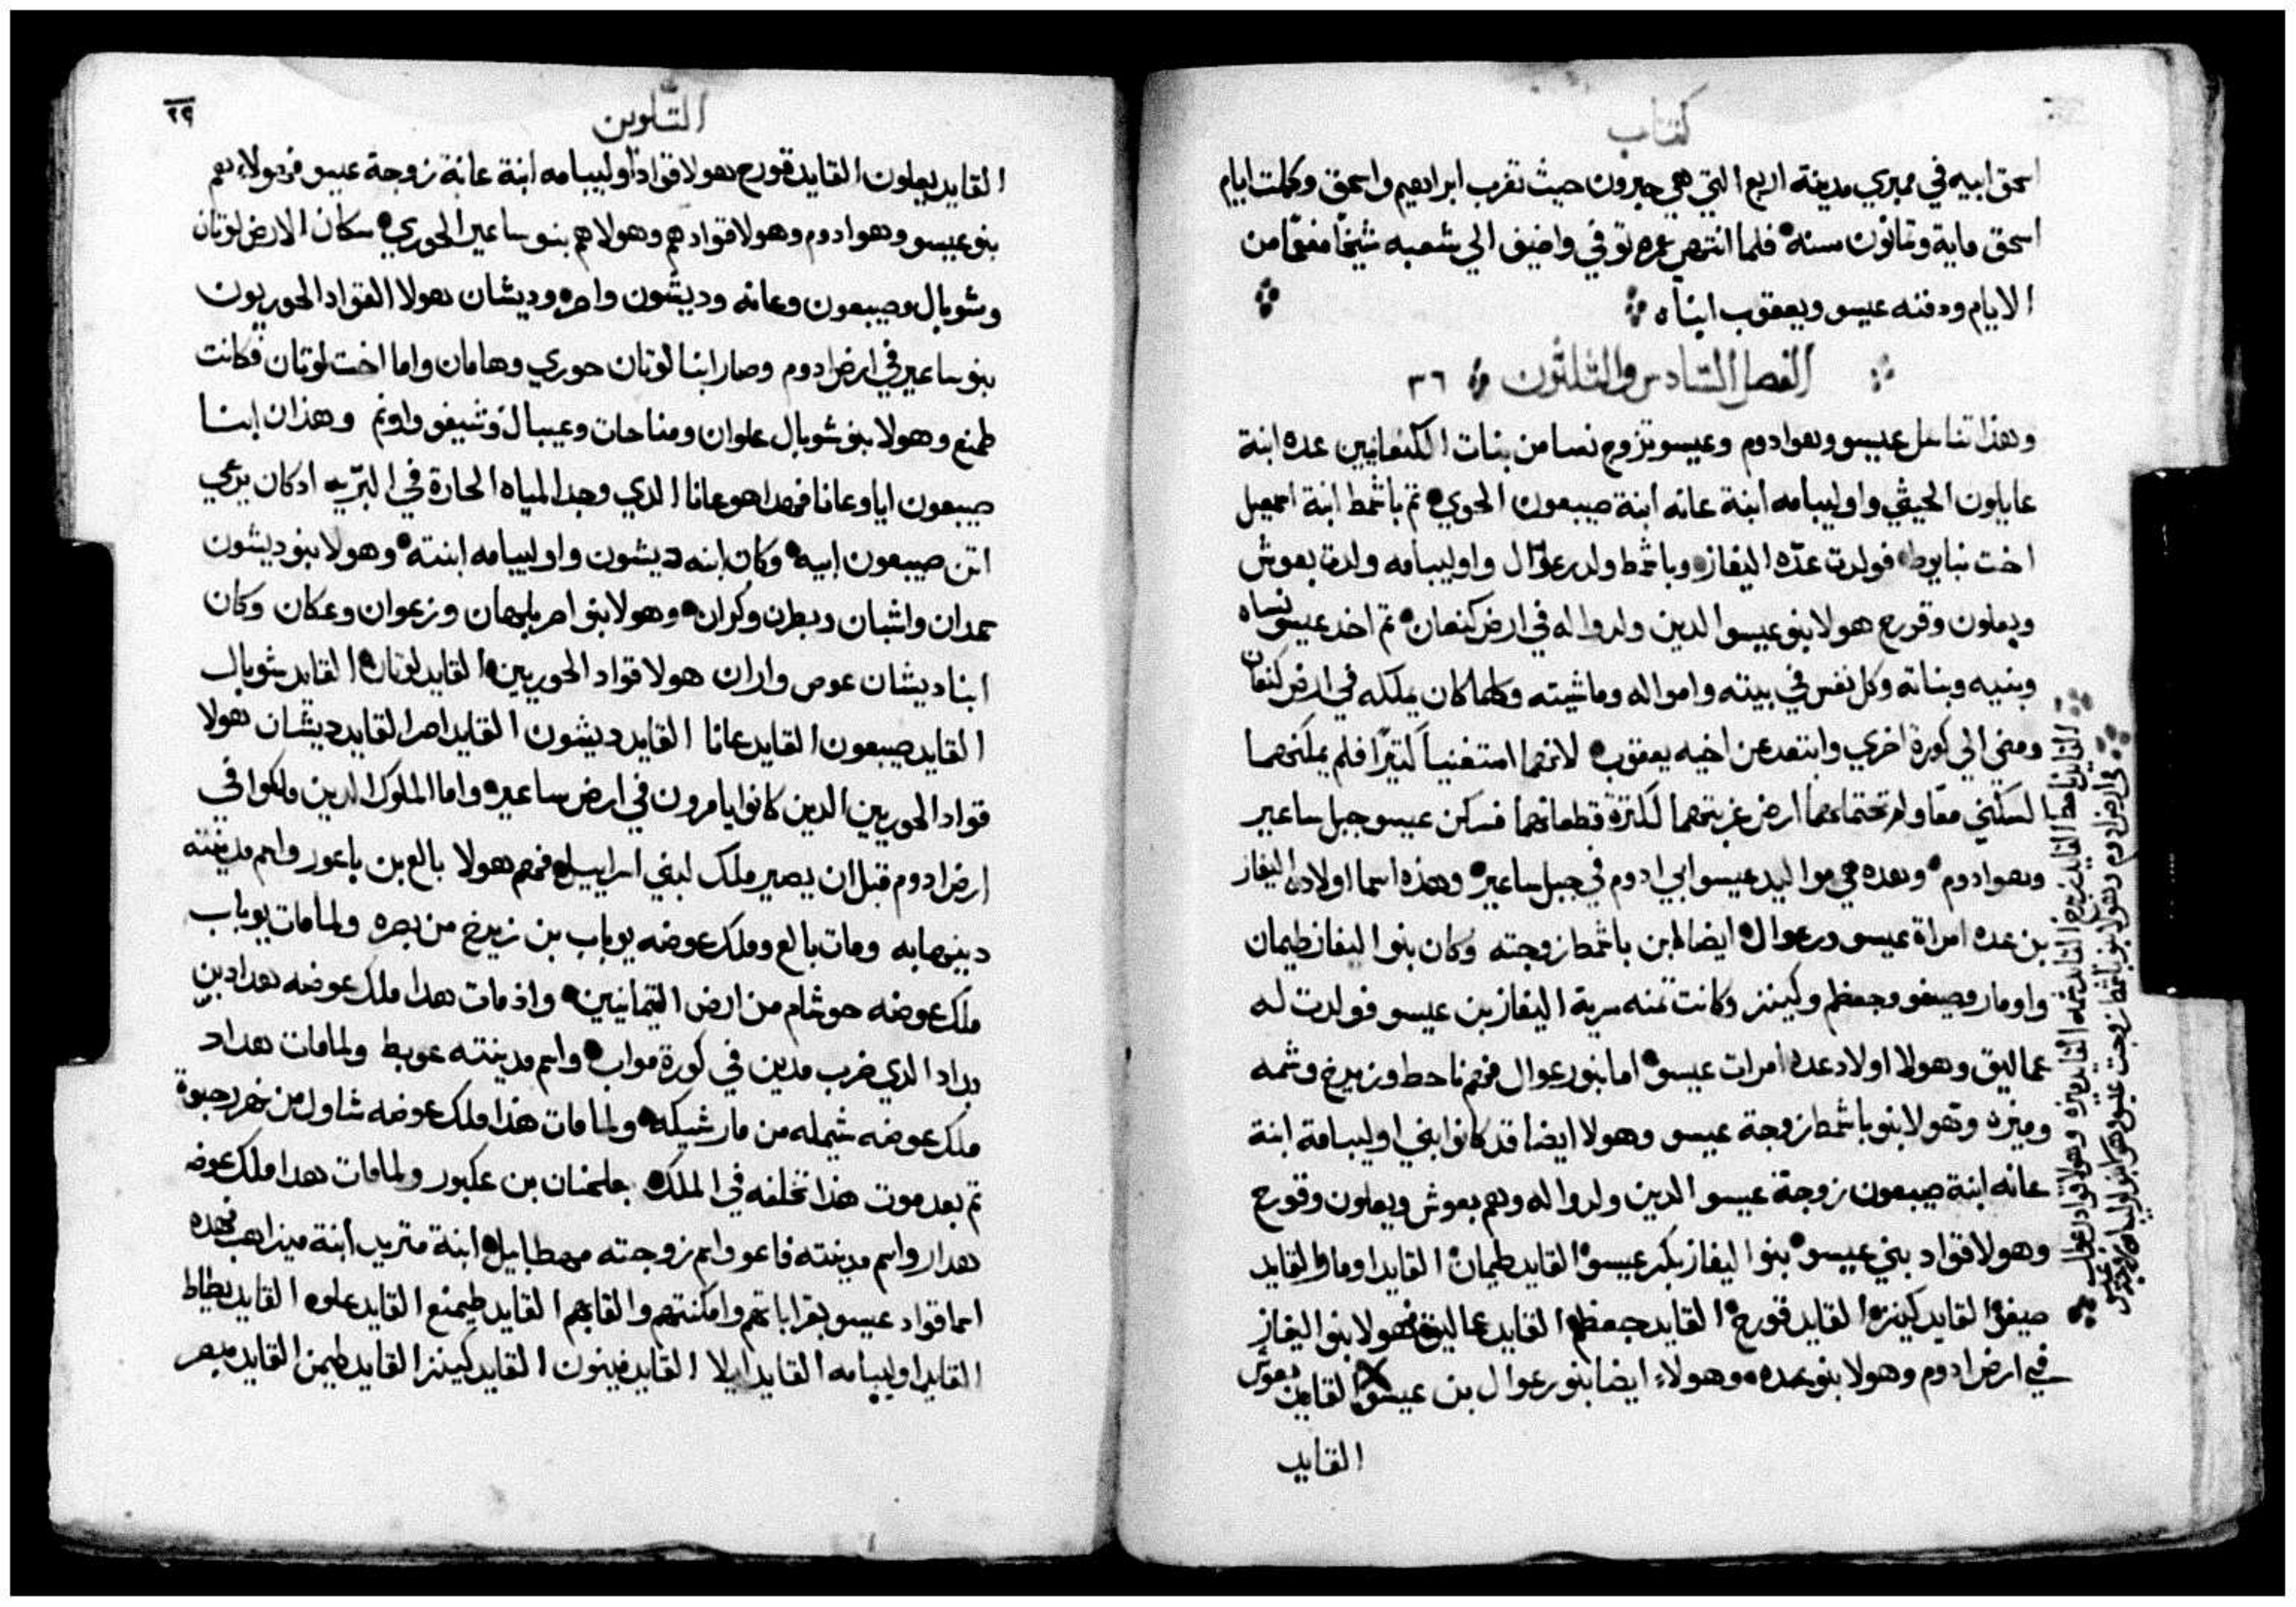 كتاب
اسحق ابيه في ممبري مدينة اربع التي هي حبرون حيث تغرب ابراهيم واسحق وكملت ايام
اسحق ماية وثمانون سنه فلما انتهى عمره توفي واضيف الي شعبه شيخا مفعما من
الايام ودفنه عيسو ويعقوب ابناه
الفصل السادس والثلثون ٣٦
وهذا تناسل عيسو وهو ادوم وعيسو تزوج نسا من بنات الكنعانيين عده ابنة
عايلون الحيثي واوليبامه ابنة عانه ابنة صيبعون الحوي ثم باشمط ابنة اسمعيل
اخت نبايوط فولدت عده اليفاز وباشمط ولدت رعوال واوليبامه ولدت يعوش
ويعلون وقورح هولا بنو عيسو الدين ولدوا له في ارض كنعان ثم اخد عيسو نساه
وبنيه وبناته وكل نفس في بيته وامواله وماشيته وكلما كان يملكه في ارض كنعان
ومضي الي كورة اخري وابتعد عن اخيه يعقوب لانهما استغنيا كثيرا فلم يمكنهما
السكني معا ولم تحتملهما ارض غربتهما لكثرة قطعانهما فسكن عيسو جبل ساعير
وهو ادوم وهده هي مواليد عيسو ابي ادوم في جبل ساعير وهذه اسما اولاده اليفاز
بن عده امراة عيسو ورعوال ايضا بن باشمط زوجته وكان بنوا اليفاز طيمان
واومار وصيفو وجعظم وكينز وكانت تمنه سرية اليفاز بن عيسو فولدت له
عماليق وهولا اولاد عده امرات عيسو اما بنو رعوال فهم ناحط وزيرخ وشمه
وميزه وهولا بنو باشمط زوجة عيسو وهولا ايضا قد كانوا بني اوليبامة ابنة
عانه ابنة صيبعون زوجة عيسو الدين ولدوا له وهم يعوش ويعلون وقورح
وهولا قواد بني عيسو بنوا اليفاز بكر عيسو القايد طيمان القايد اومار القايد
صيفو القايد كينز القايد قورح القايد جعظم القايد عماليق فهولا بنوا اليفاز
في ارض ادوم وهولا بنو عده وهولاء ايضا بنو رعوال بن عيسو القايد يعوش
القايد
القايد ناحط القايد زيرخ القايد شمه القايد ميزه وهولا قواد رعوال
في ارض ادوم وهولا بنو باشمط زوجت عيسو وهولا بنو اوليبامه زوجة عيسو
التكوين
٢٩
القايد يعلون القايد قورح هولا قواد اوليبامه ابنة عانة زوجة عيسو فهولاء هم
بنو عيسو وهو ادوم وهولا قوادهم وهولا هم بنو ساعير الحوري سكان الارض لوتان
وشوبال وصيبعون وعانه وديشون واصر وديشان هولا القواد الحوريون
بنو ساعير في ارض ادوم وصار ابنا لوتان حوري وهامان واما اخت لوتان فكانت
طمنع وهولا بنو شوبال علوان ومناحات وعيبال وشيفو واونم وهذان ابنا
صيبعون ايا وعانا فهدا هو عانا الدي وجد المياه الحارة في البريه اد كان يرعي
اتن صيبعون ابيه وكان ابنه ديشون واوليبامه ابنته وهولا بنو ديشون
حمدان واشبان ويطرن وكران وهولا بنو اصر بلهان وزعوان وعكان وكان
ابنا ديشان عوص واران هولا قواد الحوريين القايد لوتان القايد شوبال
القايد صيبعون القايد عانا القايد ديشون القايد اصر القايد ديشان هولا
قواد الحوريين الدين كانوا يامرون في ارض ساعير واما الملوك الدين ملكوا في
ارض ادوم قبل ان يصير ملك لبني اسراييل فهم هولا بالع بن باعور واسم مدينته
دينهابه ومات بالع وملك عوضه يوباب بن زيرخ من بصره ولما مات يوباب
ملك عوضه حوشام من ارض التيمانيين واذ مات هدا ملك عوضه هداد بن
بداد الدي ضرب مدين في كورة مواب واسم مدينته عويط ولما مات هداد
ملك عوضه شمله من مارشيكه ولما مات هذا ملك عوضه شاول من نهر رحبوة
ثم بعد موت هذا تخلفه في الملك بعلحنان بن عكبور ولما مات هدا ملك عوضه
هدار واسم مدينته فاعو واسم زوجته مهطابيل ابنة متريد ابنة ميزاهب فهده
اسما قواد عيسو بقراباتهم وامكنتهم والقابهم القايد طيمنع القايد علوه القايد يطاط
القايد اوليبامه القايد ايلا القايد فينون القايد كينز القايد طيمن القايد مبصر